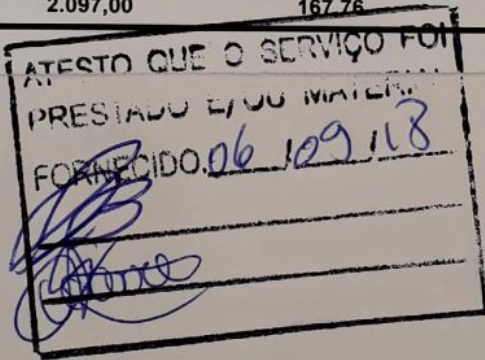 2.097,00 167,76
ATESTO QUE O SERVIÇO FOI
PRESTADO E/OU MATERIAL
FORNECIDO. 06 / 09 / 18